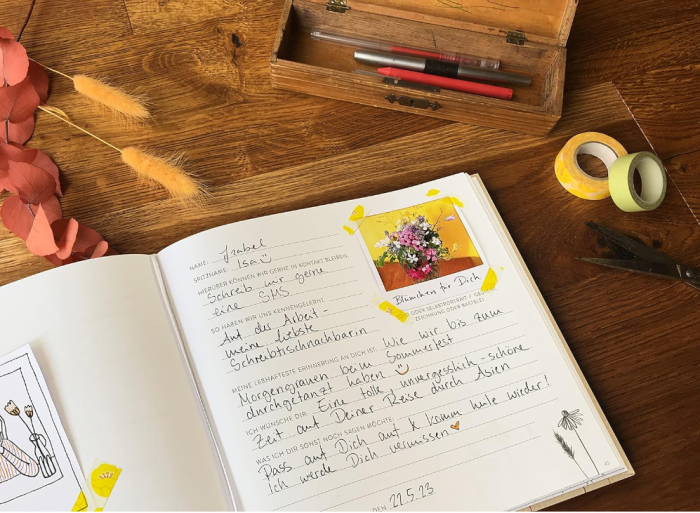 NAME: Isabel
SPITZNAME: Isa
HIERÜBER KÖNNEN WIR GERNE IN KONTAKT BLEIBEN:
Schreib mir gerne
eine SMS
SO HABEN WIR UNS KENNENGELERNT:
Auf der Arbeit -
meine liebste
Schreibtischnachbarin
Blümchen für Dich
ODER SELBSTPORTRAIT / GE-
ZEICHNUNG ODER BASTELEI
MEINE LEBHAFTESTE ERINNERUNG AN DICH IST: Wie wir bis zum
Morgengrauen beim Sommerfest
durchgetanzt haben
ICH WÜNSCHE DIR: Eine tolle, unvergesslich-schöne
Zeit auf Deiner Reise durch Asien
WAS ICH DIR SONST NOCH SAGEN MÖCHTE:
Pass auf Dich auf & komm heile wieder!
Ich werde Dich vermissen
DEN 22.5.23